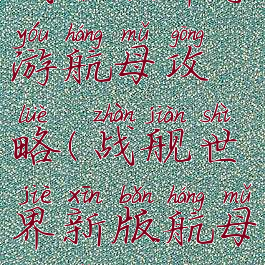 yóu háng mǔ gōng
游航母攻
lüè zhàn jiàn shì
略(战舰世
jiè xīn bǎn háng mǔ
界新版航母